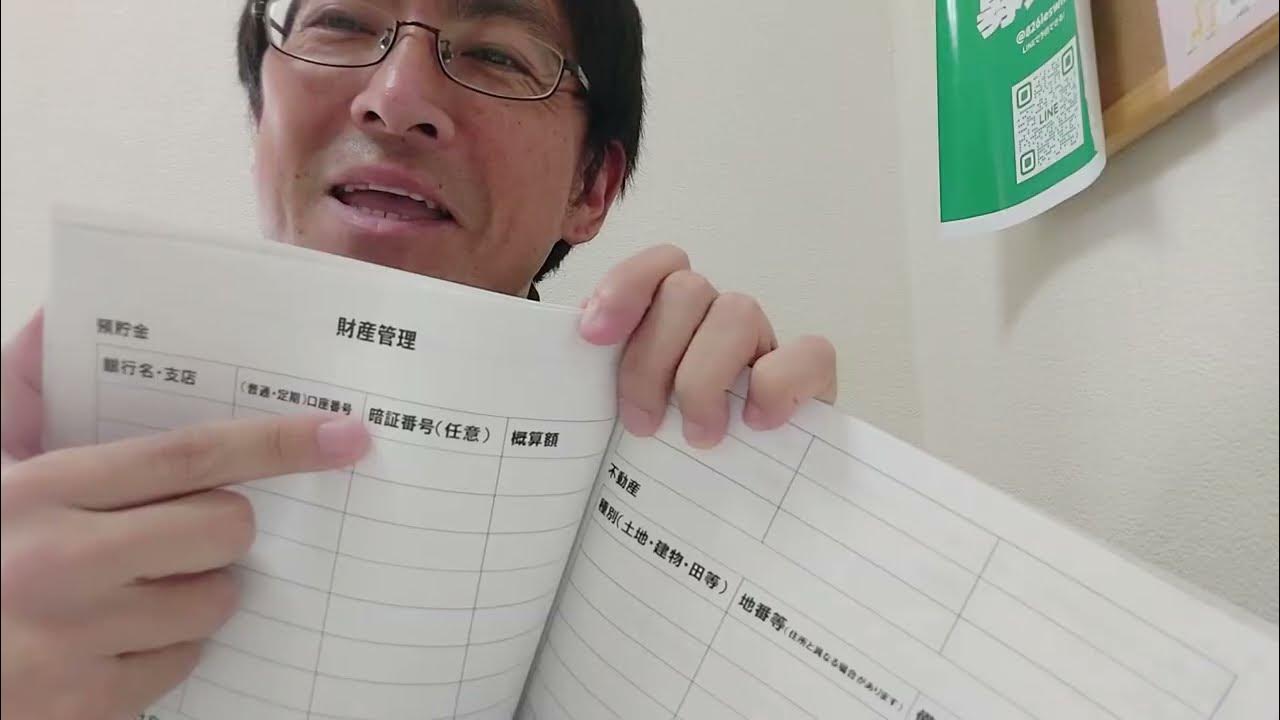 @426leswi
LINEで予約できる!
LINE
財産管理
預貯金
銀行名・支店
(普通・定期)口座番号
暗証番号(任意)
概算額
不動産
種別(土地・建物・田等)
地番等(住所と異なる場合があります)